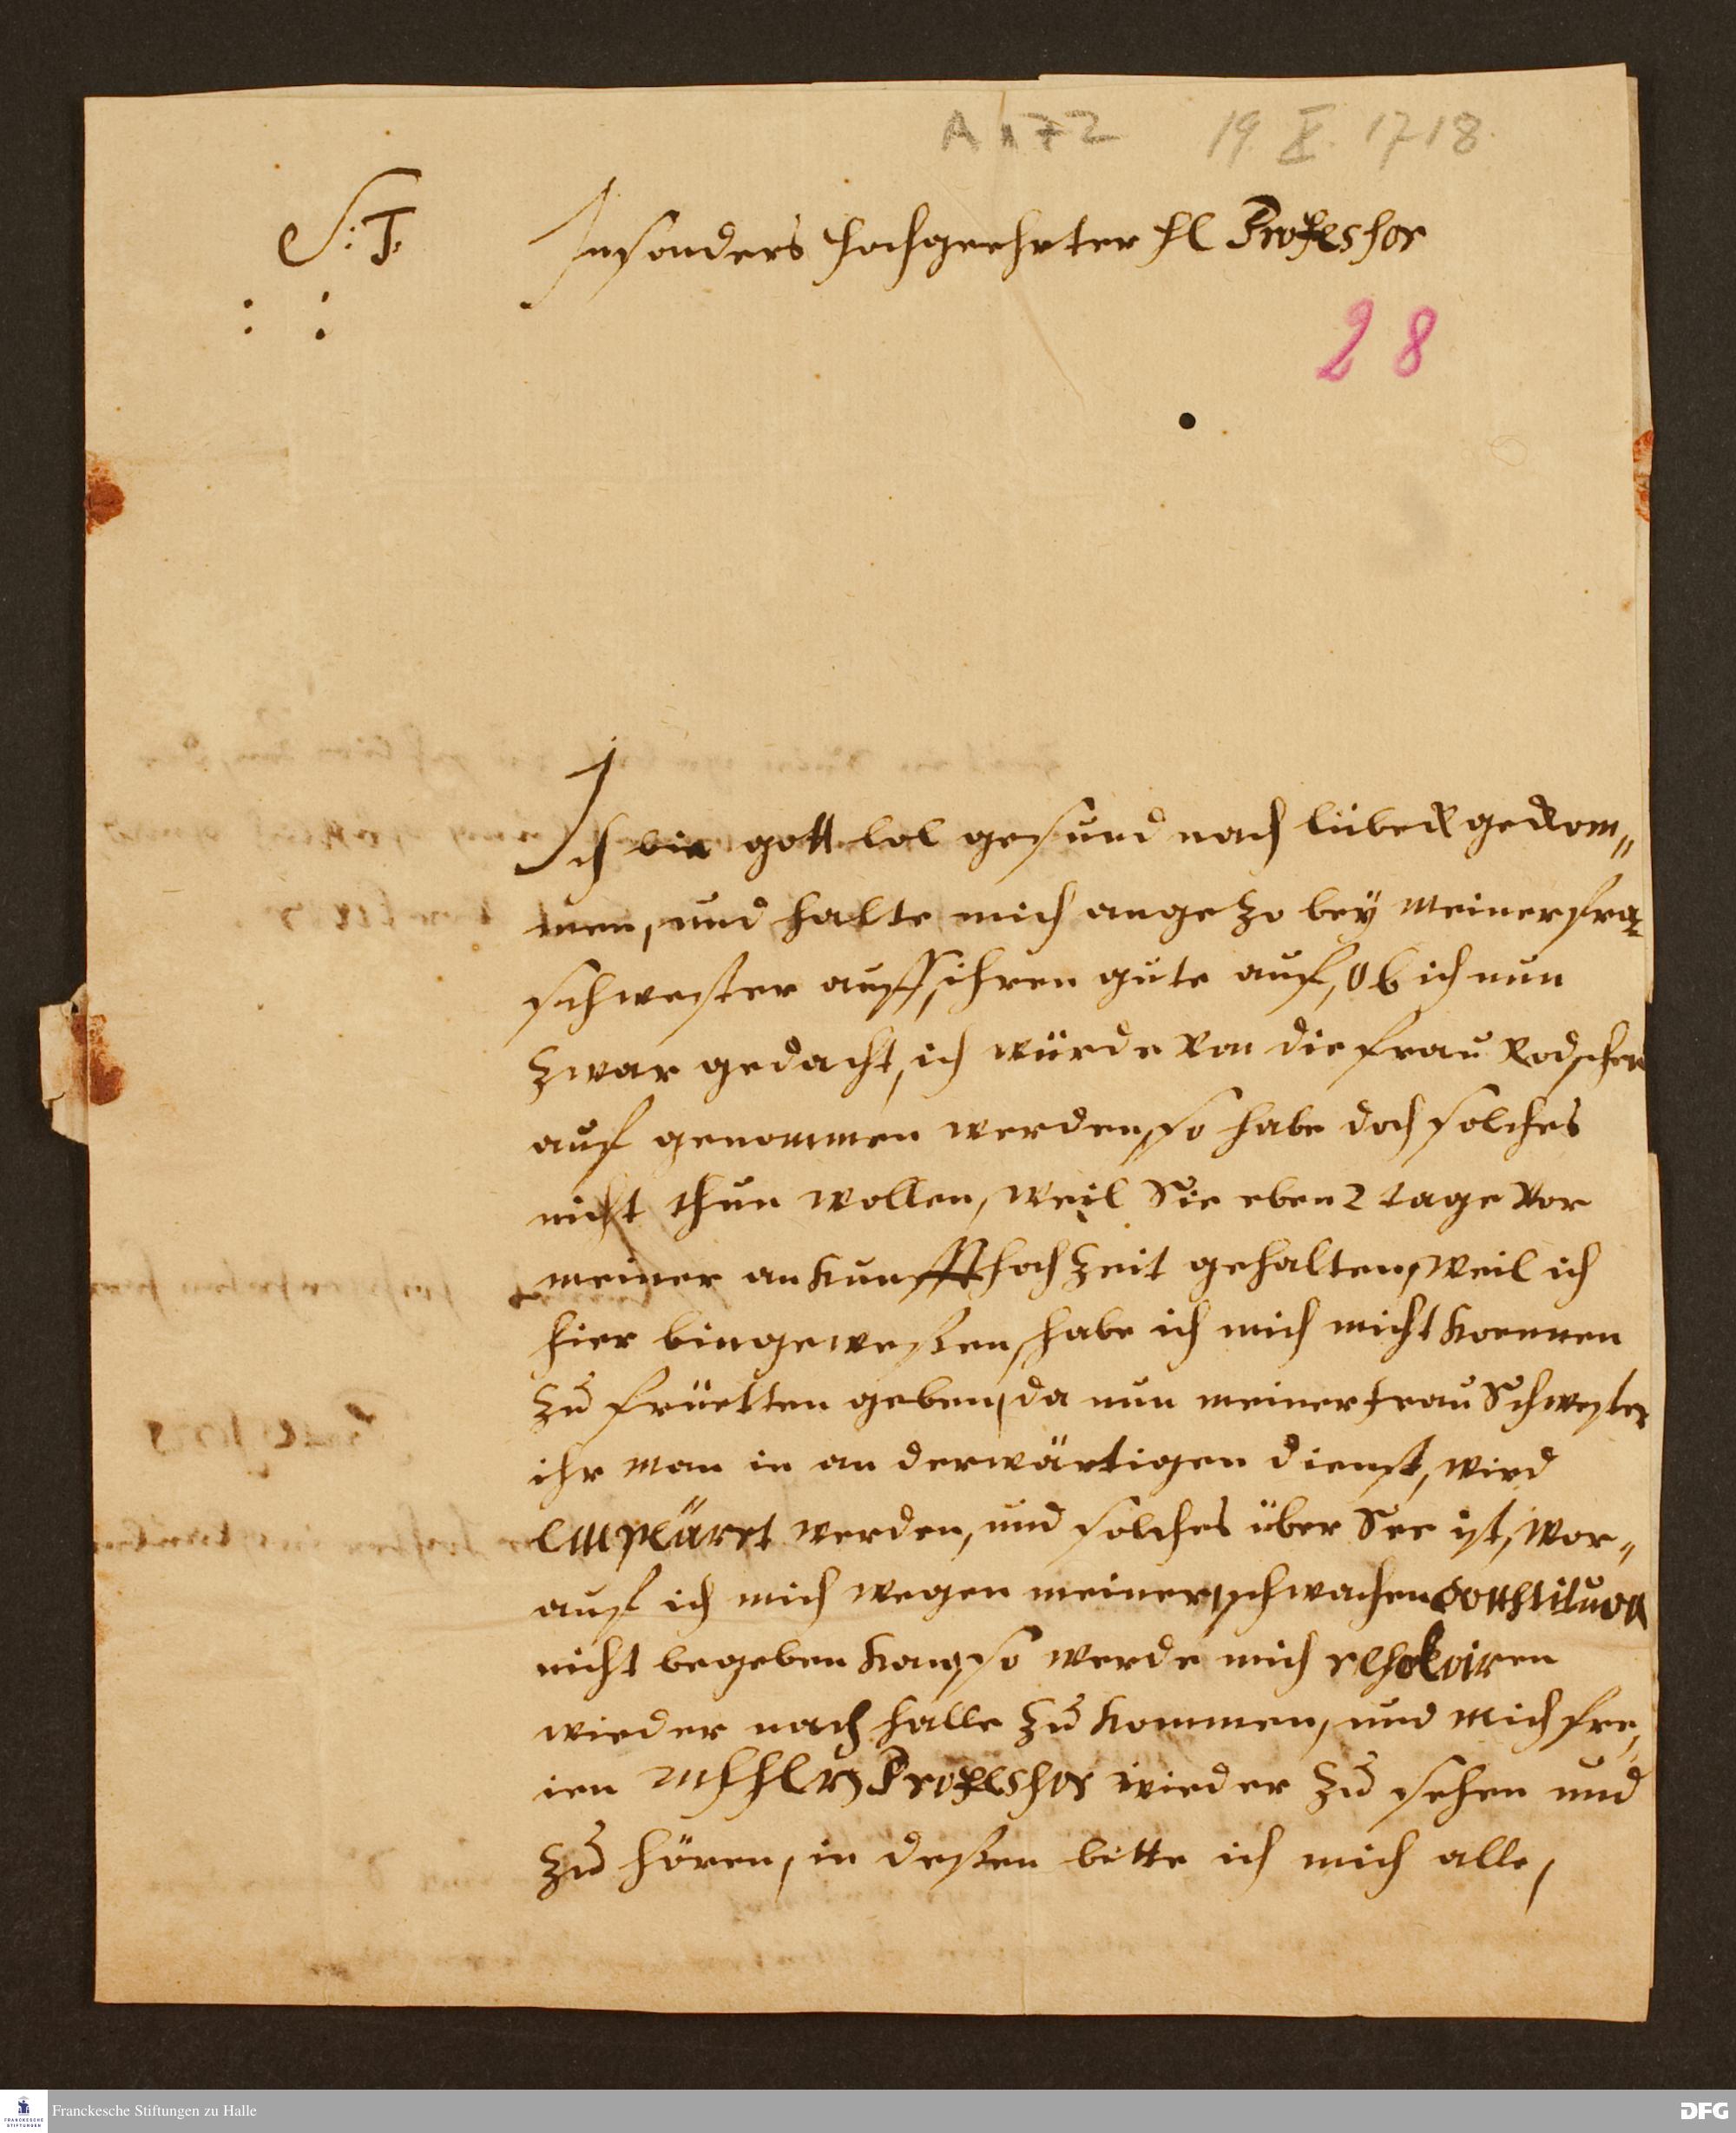 A 172 19. X. 1718.
S: T. Insonders hochgeehrter H Professor
28
Ich bin gott lob gesund nach lübeck gekom„
men, und halte mich angezo bey meiner fra
schwester auff ihren gute auf, Ob ich nun
zwar gedacht, ich würde von die frau
auf genommen werden, so habe doch solches
nicht thun wollen, weil Sie eben 2 tage vor
meiner ankunfft hochzeit gehalten, Weil ich
hier bin geweßen, habe ich mich nicht koennen
zu frietten geben, da nun meiner frau Schwester
ihr man in an derwärtigen dienst, wird
werden, und solches über See ist, wor„
auf ich mich wegen meiner schwachen
nicht begeben kan, so werde mich
wieder nach Halle zu kommen, und mich fre,
ien Professor wieder zu sehen und
zu hören, in deßen bitte ich mich alle,
Franckesche Stiftungen zu Halle
FRANCKESCHE
STIFTUNGEN
DFG